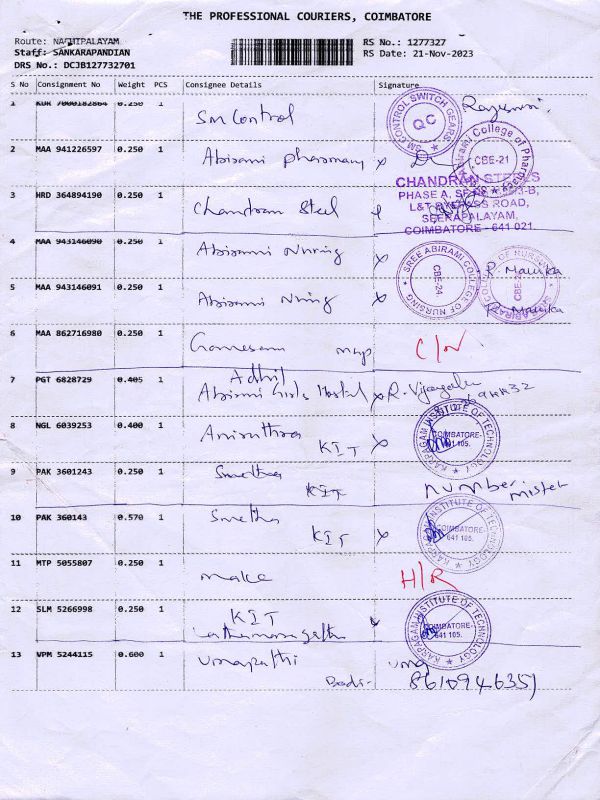 THE PROFESSIONAL COURIERS, COIMBATORE
Route: NACHIPALAYAM
Staff: SANKARAPANDIAN
DRS No.: DCJB127732701
RS No.: 1277327
RS Date: 21-Nov-2023
S No Consignment No Weight PCS Consignee Details Signature
1 KUR 7000182864 0.250 1 SM Control
SM CONTROL SWITCH GEARS QC
2 MAA 941226597 0.250 1 Abirami pharmacy x
College of Pharmacy CBE-21
3 HRD 364894190 0.250 1 Chandran Steel
CHANDRAN STEELS
PHASE A,
L&T BYPASS ROAD,
SEERAPALAYAM,
COIMBATORE - 641 021.
4 MAA 943146090 0.250 1 Abirami Nursing x
SREE ABIRAMI COLLEGE OF NURSING CBE-24
5 MAA 943146091 0.250 1 Abirami x
6 MAA 862716980 0.250 1
7 PGT 6828729 0.405 1 Abirami Girls Hostel x R.
8 NGL 6039253 0.400 1 KIT x
KARPAGAM INSTITUTE OF TECHNOLOGY COIMBATORE- 641 105.
9 PAK 3601243 0.250 1 KIT number
10 PAK 360143 0.570 1 KIT x
KARPAGAM INSTITUTE OF TECHNOLOGY COIMBATORE- 641 105.
11 MTP 5055807 0.250 1 H/R
12 SLM 5266998 0.250 1 KIT
KARPAGAM INSTITUTE OF TECHNOLOGY COIMBATORE- 641 105.
13 VPM 5244115 0.600 1 Umapathi uma